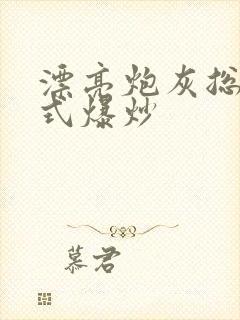 漂亮炮灰总
式爆炒
慕君